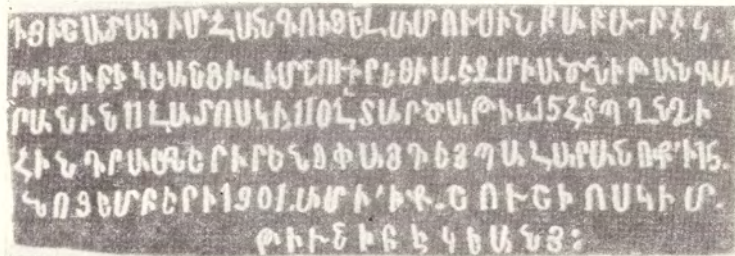 ԻՅԻՇԱՏԱԿ ԻՄ ՀԱՆԳՈՒՑԵԼ ԱՄՈՒՍԻՆ ԲԱԲԱ-ԲԷԿ.
ԹԻՒՆԻԲԷԿԵԱՆՑԻ, ԻՄ ՆՈՒԻՐԵՑԻ Ս. ԷՋՄԻԱԾՆԻ ԹԱՆԳԱ
ՐԱՆԻՆ 11 ՀԱՏ ՈՍԿԻ 110 ՀՏ ԱՐԾԱԹԻ և 15 ՀՏ ՊՂՆՁԻ
ՀԻՆ ԴՐԱՄՆԵՐ ԻՐԵՆՑ ՓԱՅՏԵՅ ՊԱՀԱՐԱՆՈՔ՝ Ի 15.
ՆՈՅԵՄԲԵՐԻ 1901. ԱՄԻ՝ Ի Ք. ՇՈՒՇԻ ՈՍԿԻ Մ.
ԹԻՒՆԻԲԷԿԵԱՆՑ: